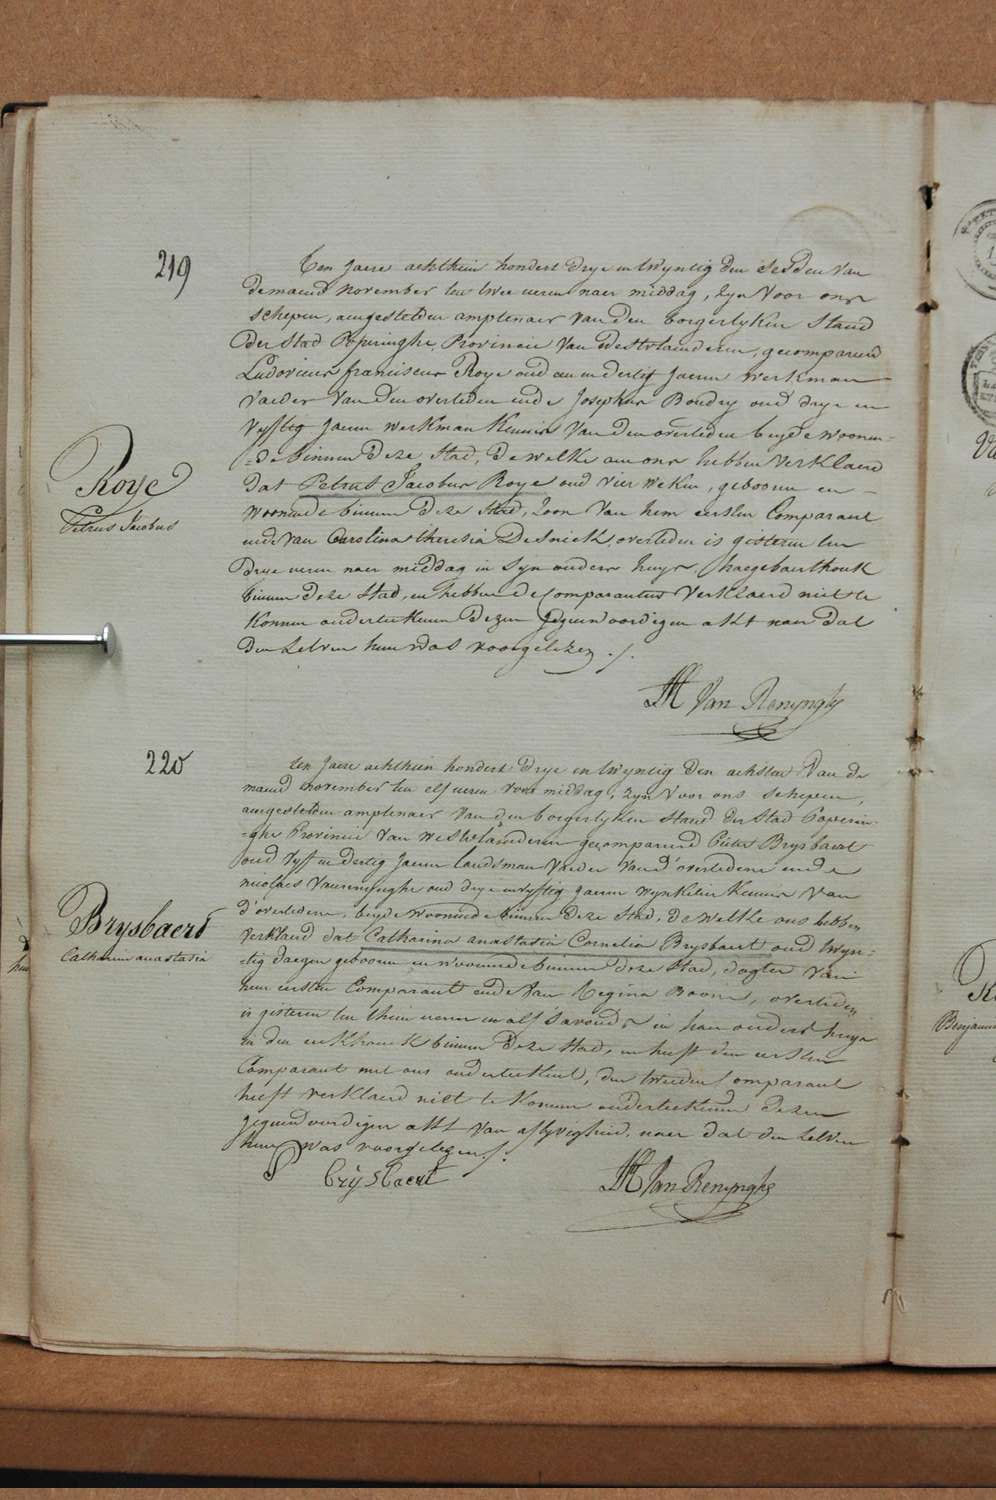 219
Ten Jaere achthien hondert drye en twyntig den sesden van
de maend november ten twee ueren naer middag, zyn voor ons
schepen, aengestelden amptenaer van den borgerlyken stand
der stad Poperinghe, Provincie van Westvlaenderen, gecompareerd
Ludovicus franciscus Roye oud een en dertig Jaeren werkman
vaeder van den overleden ende Josephus Boudry oud drye en
vyftig Jaeren werkman Kennis van den overleden beyde woonen-
=de binnen deze stad, de welke aen ons hebben verklaerd
dat Petrus Jacobus Roye oud vier weken, geboren en
woonende binnen deze stad, zoon van hem eersten Comparant
ende van Carolina theresia Desnick, overleden is gisteren ten
drye ueren naer middag in syn ouders huys, haegebaerthouk
binnen deze stad, en hebben de Comparanten verklaerd niet te
konnen onderteekenen dezen gegenwoordigen akt naer dat
den zelven hun was voorgelezen ./.
Roye
Petrus Jacobus
Van Renynghe
220
ten Jaere achthien hondert drye en twyntig den achsten van de
maend november ten elf ueren voor middag, zyn voor ons schepen,
aengestelden amptenaer van den borgerlyken stand der stad Poperin-
=ghe Provincie van westvlaenderen gecompareerd Pieter Brysbaert
oud vyf en dertig Jaeren landsman vaeder van d'overledene ende
nicolaes Vanrenynghe oud drye en vyftig jaeren wynkelier Kennis van
d'overledene, beyde woonende binnen deze stad, de welke ons hebben
verklaerd dat Catharina anastasia Cornelia Brysbaert oud twyn-
=tig daegen geboren en woonende binnen deze stad, dogter van
hem eersten Comparant ende van Regina Boone, overleden
is gisteren ten thien ueren en alf s'avonds in haer ouders huys
in den eekhouck binnen deze stad, en heeft den eersten
Comparant met ons onderteekent, den tweeden Comparant
heeft verklaerd niet te konnen onderteekenen dezen
gegenwoordigen akt van aflyvigheid, naer dat den zelven
hun was voorgelezen ./.
Brysbaert
Catharina anastasia
brÿsbaert
Van Renynghe